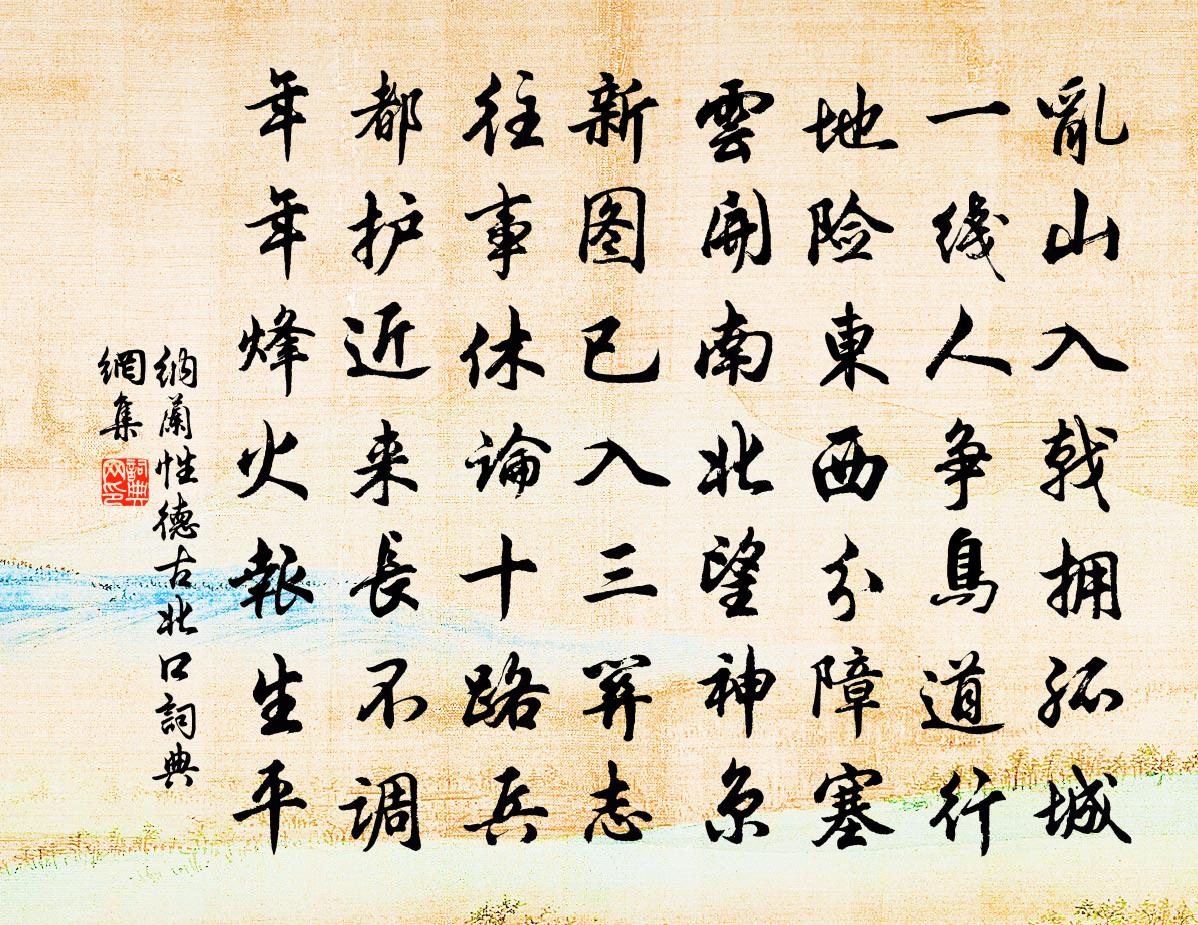 亂山入戟拥孤城
一綫人争鳥道行
地险東西分障塞
雲開南北望神京
新图已入三關志
往事休論十路兵
都护近来長不调
年年烽火報生平
納蘭性德古北口詞典
網集
詞典
网印